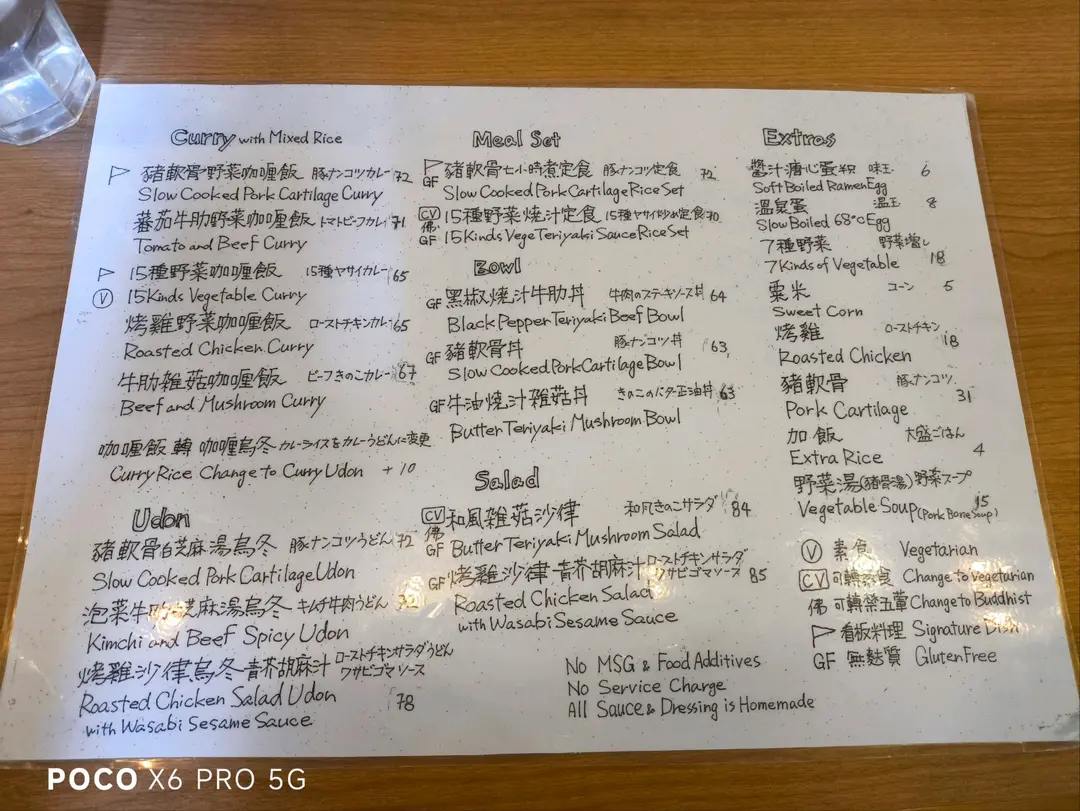 Curry with Mixed Rice
豬軟骨野菜咖喱飯 豚ナンコツカレー 72
Slow Cooked Pork Cartilage Curry
蕃茄牛肋野菜咖喱飯 トマトビーフカレー 71
Tomato and Beef Curry
15種野菜咖喱飯 15種ヤサイカレー 65
V 15Kinds Vegetable Curry
烤雞野菜咖喱飯 ローストチキンカレー 65
Roasted Chicken Curry
牛肋雜菇咖喱飯 ビーフきのこカレー 67
Beef and Mushroom Curry
咖喱飯 轉 咖喱烏冬 カレーライスをカレーうどんに変更
Curry Rice Change to Curry Udon +10
Udon
豬軟骨白芝麻湯烏冬 豚ナンコツうどん 72
Slow Cooked Pork Cartilage Udon
泡菜牛肋芝麻湯烏冬 キムチ牛肉うどん
Kimchi and Beef Spicy Udon
烤雞沙律烏冬-青芥胡麻汁 ローストチキンサラダうどん
ワサビゴマソース
Roasted Chicken Salad Udon 78
with Wasabi Sesame Sauce
Meal Set
豬軟骨七小時煮定食 豚ナンコツ定食 72
GF Slow Cooked Pork Cartilage Rice Set
CV 15種野菜燒汁定食 15種ヤサイ炒め定食 70
佛
GF 15Kinds Vege Teriyaki Sauce Rice Set
Bowl
GF 黑椒燒汁牛肋丼 牛肉のステーキソース丼 64
Black Pepper Teriyaki Beef Bowl
GF 豬軟骨丼 豚ナンコツ丼 63
Slow Cooked Pork Cartilage Bowl
GF 牛油燒汁雜菇丼 きのこのバター正油丼 63
Butter Teriyaki Mushroom Bowl
Salad
CV 和風雜菇沙律 和风きのこサラダ 84
佛
GF Butter Teriyaki Mushroom Salad
GF 烤雞沙律-青芥胡麻汁 ローストチキンサラダ
ワサビゴマソース 85
Roasted Chicken Salad
with Wasabi Sesame Sauce
No MSG & Food Additives
No Service Charge
All Sauce & Dressing is Homemade
Extras
醬汁溏心蛋 味玉 6
Soft Boiled Ramen Egg
溫泉蛋 温玉 8
Slow Boiled 68°C Egg
7種野菜 野菜増し
7Kinds of Vegetable 18
粟米 コーン 5
Sweet Corn
烤雞 ローストチキン
Roasted Chicken 18
豬軟骨 豚ナンコツ
Pork Cartilage 31
加飯 大盛ごはん
Extra Rice 4
野菜湯(豬骨湯) 野菜スープ
Vegetable Soup (Pork Bone Soup) 15
V 素食 Vegetarian
CV 可轉素食 Change to Vegetarian
佛 可轉禁五葷 Change to Buddhist
看板料理 Signature Dish
GF 無麩質 Gluten Free
POCO X6 PRO 5G